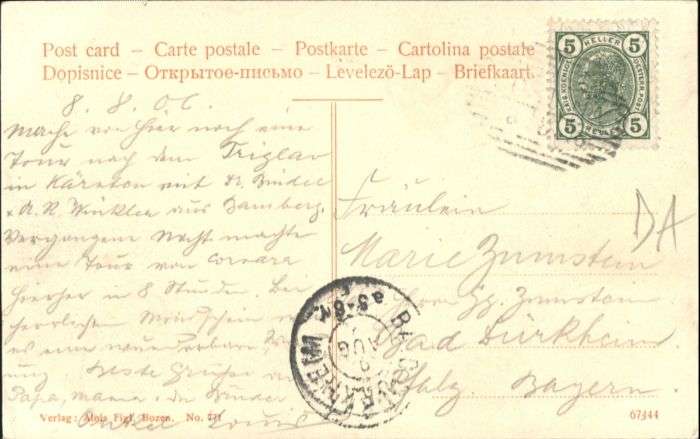 Post card – Carte postale – Postkarte – Cartolina postale
Dopisnice – Открытое-письмо – Levelező-Lap – Briefkaart.
5 HELLER 5
5 HELLER 5
8. 8. 06.
Mache von hier noch eine
Tour nach dem Triglav
in Kärnten mit Dr. Binder
A. R. Winkler aus Bamberg.
Vergangene Nacht machte
eine Tour von Corvara
hierher in 8 Stunden. Bei
herrlichem Mondschein
es eine wunderbare
Beste Grüße an
Papa, Mama, die Kinder
Onkel Louis
Fräulein
Marie Zumstein
Zumstein
Bad Dürkheim
Pfalz. Bayern.
DA
BAD DÜRKHEIM
AUG
Verlag: Alois Figl, Bozen. No. 771
67344